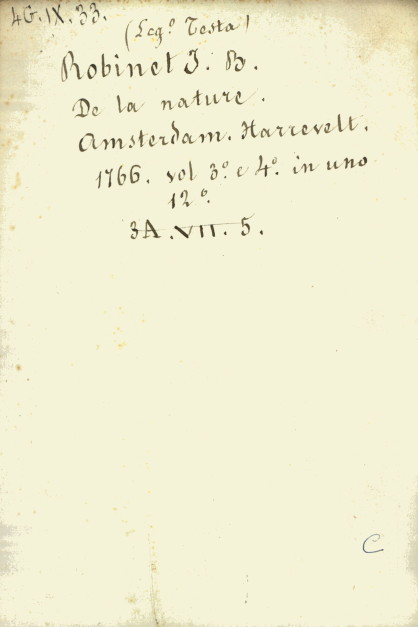 4G.IX.33.
(Leg.º Testa)
Robinet J. B.
De la nature.
Amsterdam. Harrevelt.
1766. vol 3.º e 4.º in uno
12.º
3A.VII.5.
C